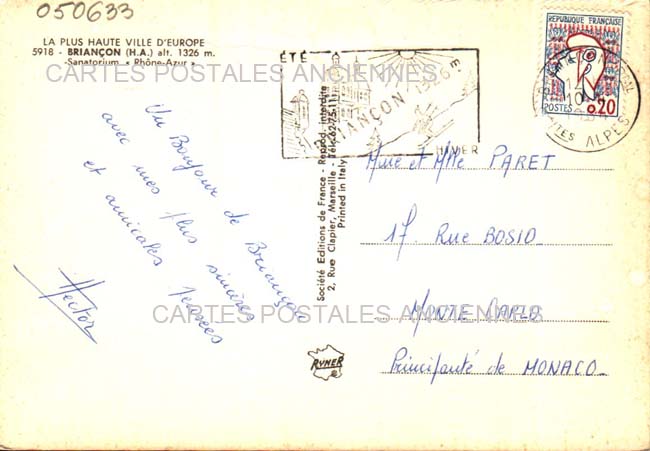 050633
LA PLUS HAUTE VILLE D'EUROPE
5918 - BRIANÇON (H.A.) alt. 1326 m.
-Sanatorium « Rhône-Azur »
CARTES POSTALES ANCIENNES
Un Bonjour de Briançon
avec mes plus sincères
et amicales Pensées
Hector
Société Editions de France - Reprod. interdite
2, Rue Clapier, Marseille - Tél. 62-75-11
Printed in Italy
RYNER
ÉTÉ
BRIANÇON 1326
HIVER
REPUBLIQUE FRANÇAISE
POSTES 0,20
HAUTES ALPES
Mme et Mlle PARET
17. Rue BOSIO
MONTE CARLO
Principauté de MONACO
CARTES POSTALES ANCIENNES